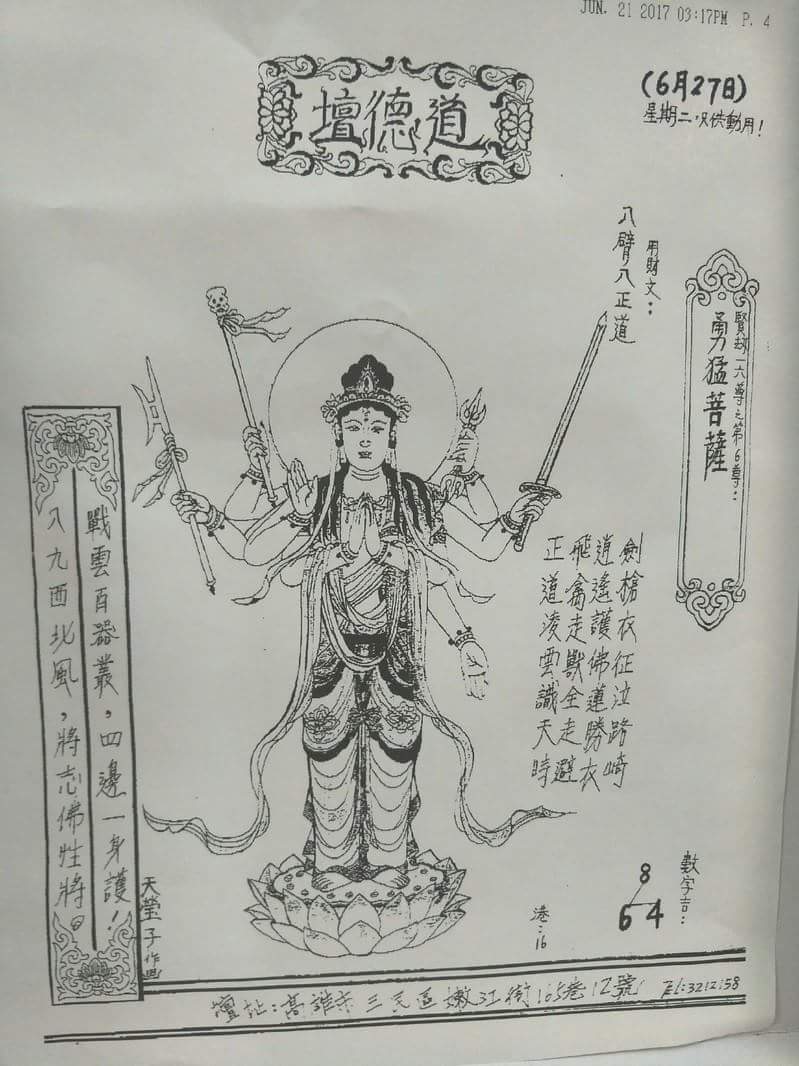 JUN. 21 2017 03:17PM P. 4
(6月27日)
星期二,只供動用!
道德壇
用財文:
八臂八正道
賢劫一六尊之第6尊:
勇猛菩薩
劍槍衣征泣路崎
逍遙護佛蓮勝衣
飛禽走獸全走避
正道凌雲識天時
戰雲百器叢,四邊一身護!
八九西北風,將志佛性將。
天瑩子作画
數字言:
8
6 4
港:16
壇址:高雄市三民區嫩江街165巷12號 Tel:3212158